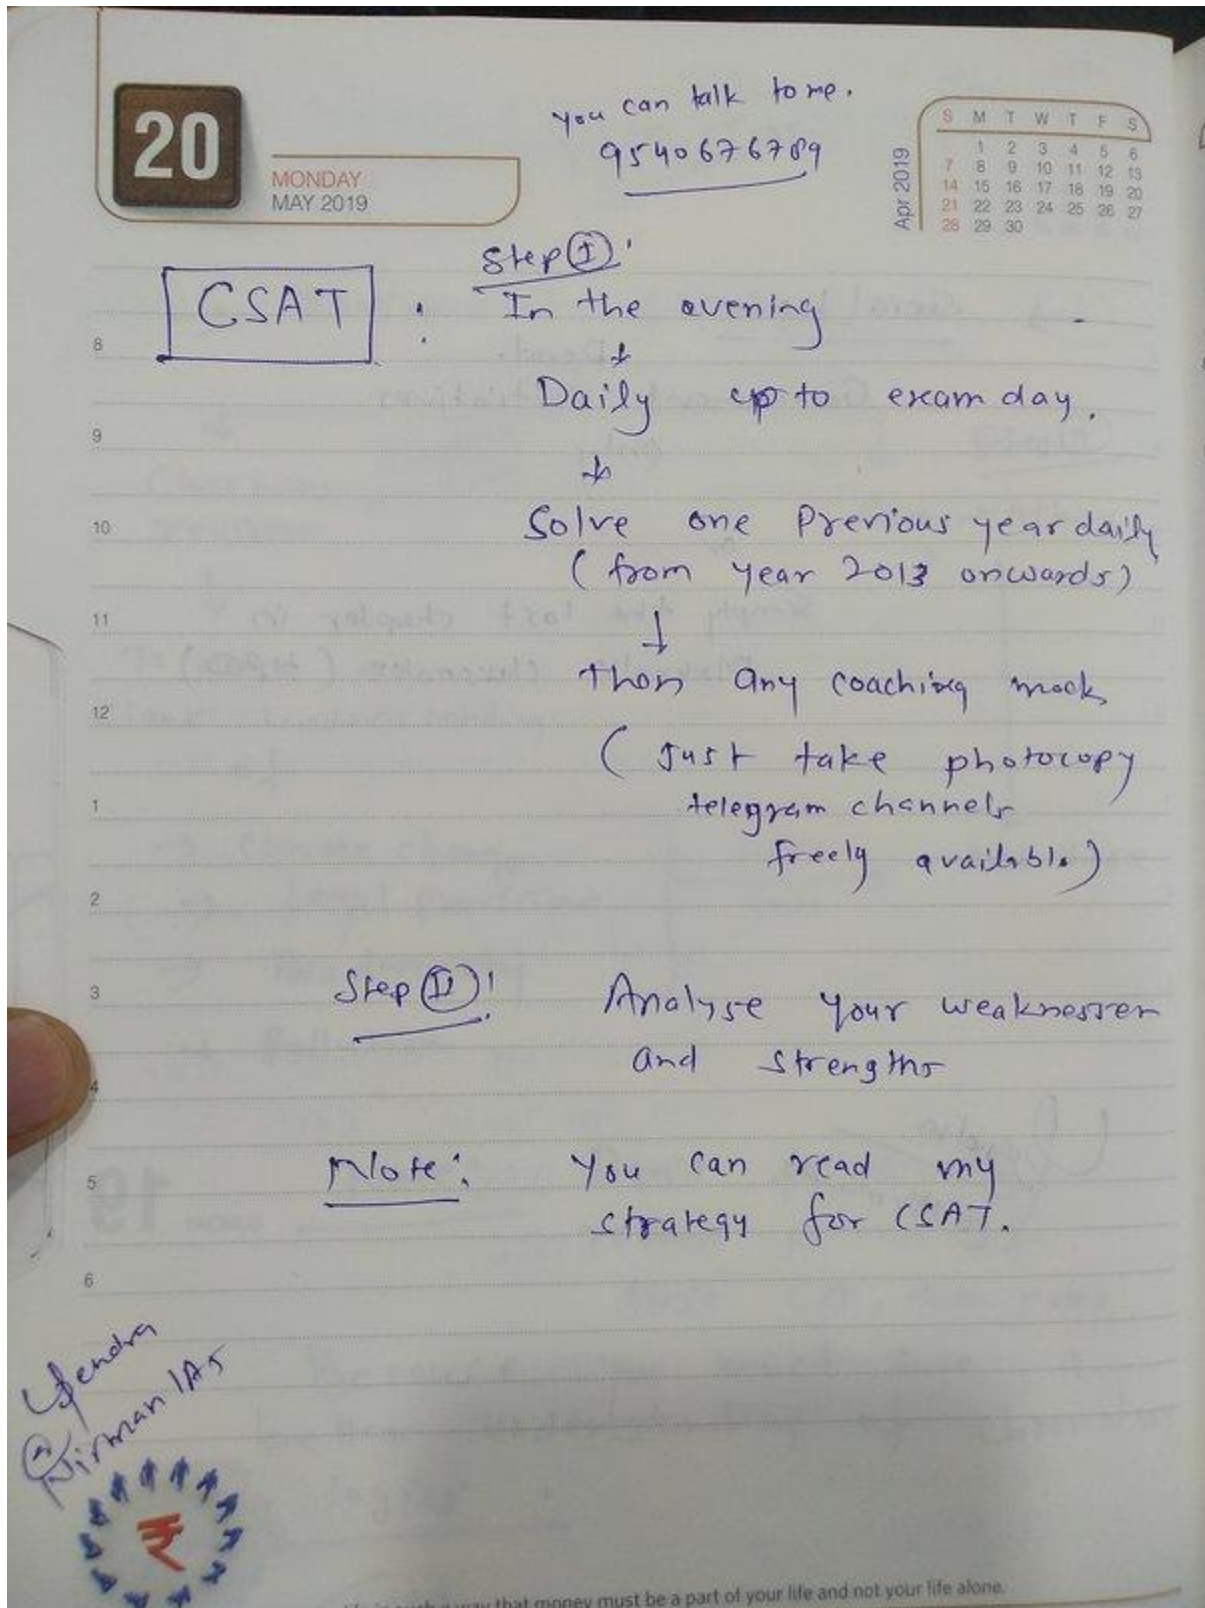 20
MONDAY
MAY 2019
you can talk to me.
9540676789
Apr 2019
S M T W T F S
1 2 3 4 5 6
7 8 9 10 11 12 13
14 15 16 17 18 19 20
21 22 23 24 25 26 27
28 29 30
Step I:
CSAT : In the evening
Daily up to exam day.
Solve one Previous year daily
(from year 2013 onwards)
then any coaching mock
(Just take photocopy
telegram channels
freely available.)
Step II: Analyse your weaknesses
and strengths
Note: You can read my
strategy for CSAT.
8
9
10
11
12
1
2
3
4
5
6
@Nirman IAS
₹
way that money must be a part of your life and not your life alone.